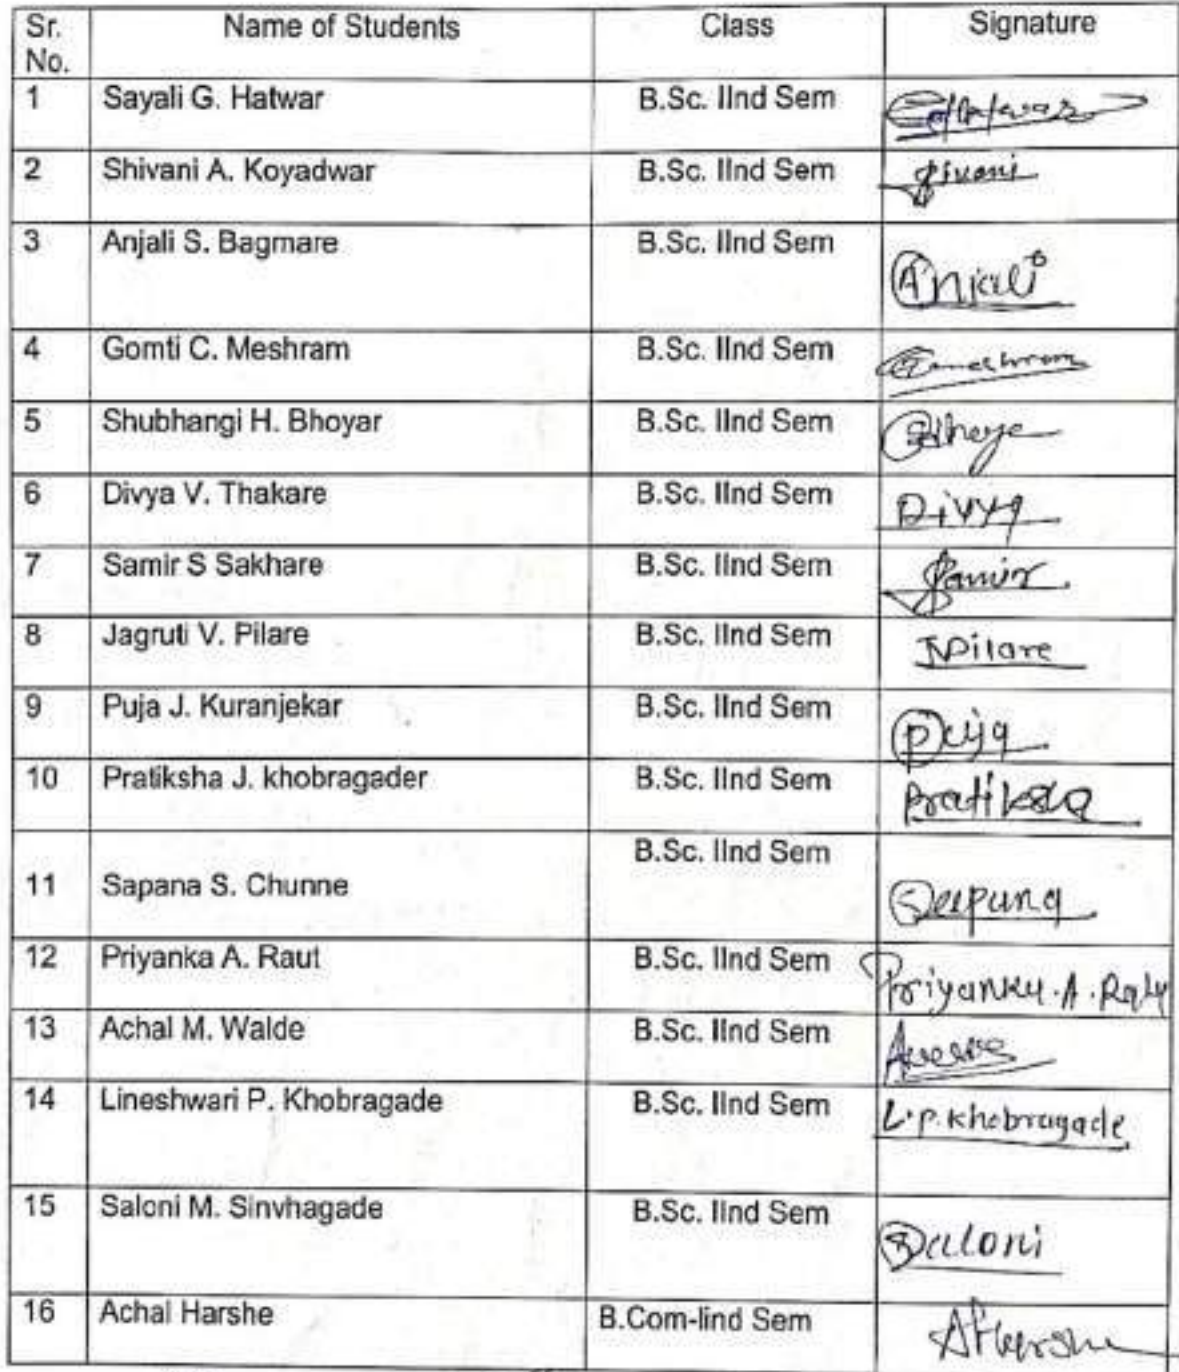 Sr. No. Name of Students Class Signature
1 Sayali G. Hatwar B.Sc. IInd Sem
2 Shivani A. Koyadwar B.Sc. IInd Sem
3 Anjali S. Bagmare B.Sc. IInd Sem Anjali
4 Gomti C. Meshram B.Sc. IInd Sem
5 Shubhangi H. Bhoyar B.Sc. IInd Sem
6 Divya V. Thakare B.Sc. IInd Sem Divya
7 Samir S Sakhare B.Sc. IInd Sem Samir
8 Jagruti V. Pilare B.Sc. IInd Sem JPilare
9 Puja J. Kuranjekar B.Sc. IInd Sem Puja
10 Pratiksha J. khobragader B.Sc. IInd Sem Pratiksha
11 Sapana S. Chunne B.Sc. IInd Sem Sapana
12 Priyanka A. Raut B.Sc. IInd Sem Priyanka.A.Raut
13 Achal M. Walde B.Sc. IInd Sem
14 Lineshwari P. Khobragade B.Sc. IInd Sem L.P.Khobragade
15 Saloni M. Sinvhagade B.Sc. IInd Sem Saloni
16 Achal Harshe B.Com-Iind Sem